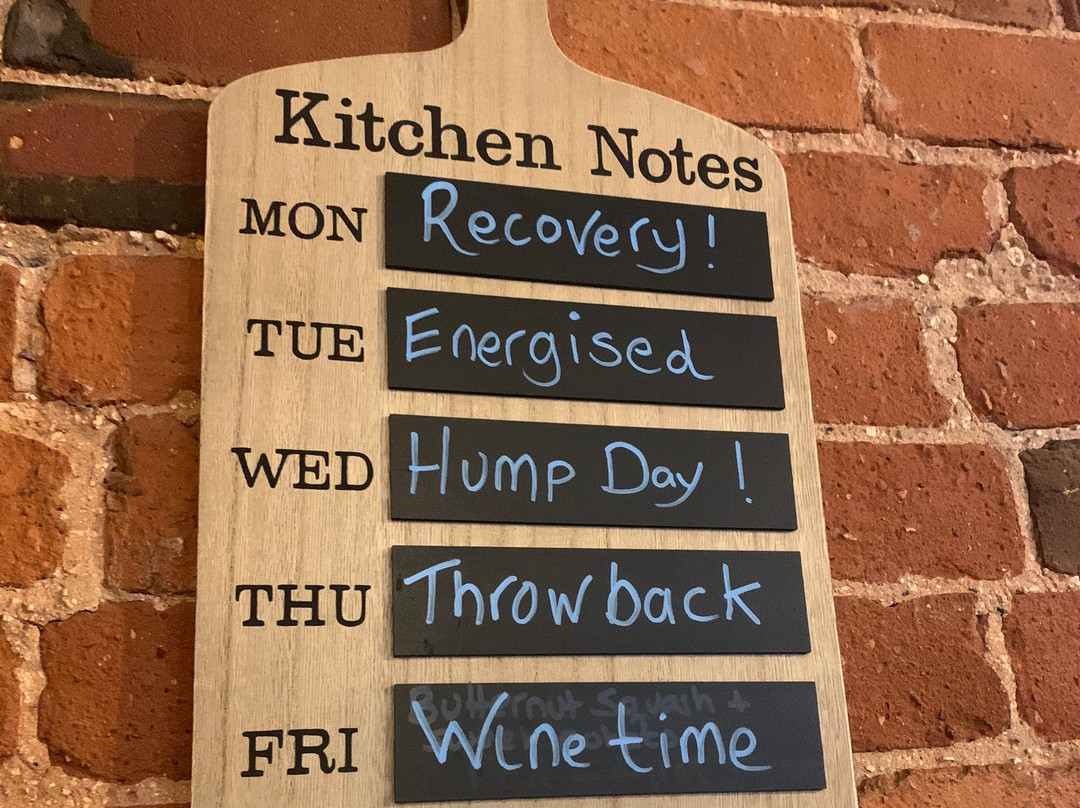 Kitchen Notes
MON Recovery!
TUE Energised
WED Hump Day !
THU Throwback
Butternut Squash +
FRI Wine time